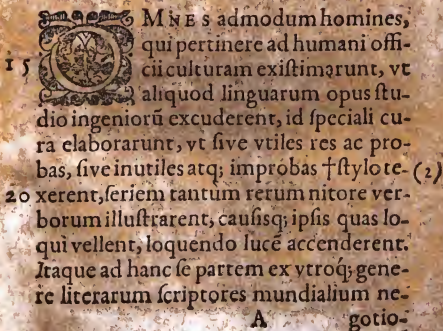 OMNES admodum homines,
qui pertinere ad humani offi-
15 cii culturam exiſtimarunt, vt
aliquod linguarum opus ſtu-
dio ingeniorũ excuderent, id ſpeciali cu-
ra elaborarunt, vt ſive vtiles res ac pro-
bas, ſive inutiles atq; improbas †ſtylo te- (2)
20 xerent, ſeriem tantum rerum nitore ver-
borum illuſtrarent, cauſisq; ipſis quas lo-
qui vellent, loquendo lucẽ accenderent.
Itaque ad hanc ſe partem ex vtroq; gene-
re literarum ſcriptores mundialium ne-
A gotio-